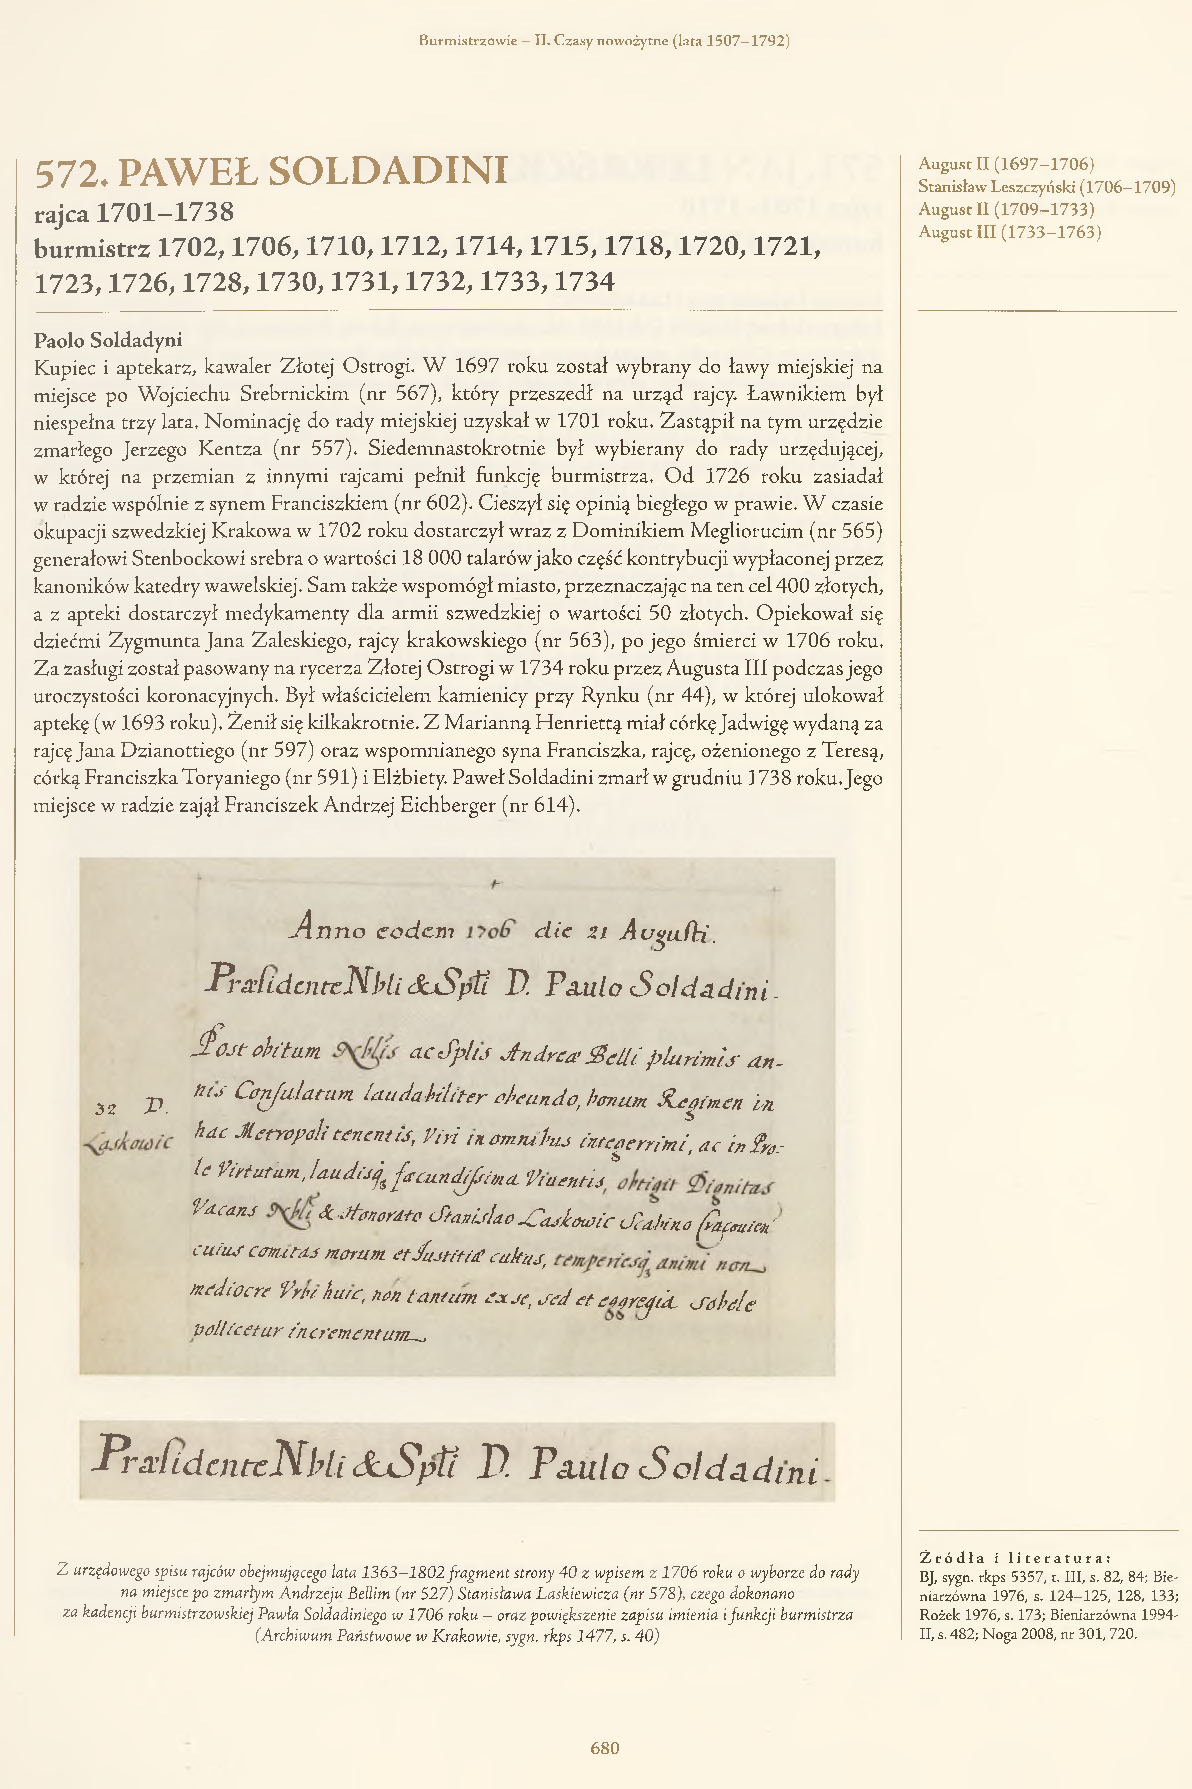 Burmistrzowie – II. Czasy nowożytne (lata 1507–1792)
572. PAWEŁ SOLDADINI
rajca 1701–1738
burmistrz 1702, 1706, 1710, 1712, 1714, 1715, 1718, 1720, 1721,
1723, 1726, 1728, 1730, 1731, 1732, 1733, 1734
August II (1697–1706)
Stanisław Leszczyński (1706–1709)
August II (1709–1733)
August III (1733–1763)
Paolo Soldadyni
Kupiec i aptekarz, kawaler Złotej Ostrogi. W 1697 roku został wybrany do ławy miejskiej na
miejsce po Wojciechu Srebrnickim (nr 567), który przeszedł na urząd rajcy. Ławnikiem był
niespełna trzy lata. Nominację do rady miejskiej uzyskał w 1701 roku. Zastąpił na tym urzędzie
zmarłego Jerzego Kentza (nr 557). Siedemnastokrotnie był wybierany do rady urzędującej,
w której na przemian z innymi rajcami pełnił funkcję burmistrza. Od 1726 roku zasiadał
w radzie wspólnie z synem Franciszkiem (nr 602). Cieszył się opinią biegłego w prawie. W czasie
okupacji szwedzkiej Krakowa w 1702 roku dostarczył wraz z Dominikiem Megliorucim (nr 565)
generałowi Stenbockowi srebra o wartości 18 000 talarów jako część kontrybucji wypłaconej przez
kanoników katedry wawelskiej. Sam także wspomógł miasto, przeznaczając na ten cel 400 złotych,
a z apteki dostarczył medykamenty dla armii szwedzkiej o wartości 50 złotych. Opiekował się
dziećmi Zygmunta Jana Zaleskiego, rajcy krakowskiego (nr 563), po jego śmierci w 1706 roku.
Za zasługi został pasowany na rycerza Złotej Ostrogi w 1734 roku przez Augusta III podczas jego
uroczystości koronacyjnych. Był właścicielem kamienicy przy Rynku (nr 44), w której ulokował
aptekę (w 1693 roku). Żenił się kilkakrotnie. Z Marianną Henriettą miał córkę Jadwigę wydaną za
rajcę Jana Dzianottiego (nr 597) oraz wspomnianego syna Franciszka, rajcę, ożenionego z Teresą,
córką Franciszka Toryaniego (nr 591) i Elżbiety. Paweł Soldadini zmarł w grudniu 1738 roku. Jego
miejsce w radzie zajął Franciszek Andrzej Eichberger (nr 614).
Anno eodem 1706 die 21 Augusti.
Præsidente Nbli & Spli D. Paulo Soldadini.
Post obitum Nblis ac Splis Andreæ Belli plurimis an-
nis Consulatum laudabiliter obeundo, bonum Regimen in
32 D. Laskowic
hac Metropoli tenentis, Viri in omnibus integerrimi, ac in Pro-
le Virtutum, laudisq fæcundissima Viventis, obtigit Dignitas
Vacans Nbli & Honorato Stanislao Laskowic Scabino Cracovien
cuius comitas morum et Justitiæ cultus, temperiesq animi non
mediocre Vrbi huic, non tantum ex se, sed et eggregia Sobole
pollicetur incrementum
Præsidente Nbli & Spli D. Paulo Soldadini.
Z urzędowego spisu rajców obejmującego lata 1363–1802 fragment strony 40 z wpisem z 1706 roku o wyborze do rady
na miejsce po zmarłym Andrzeju Bellim (nr 527) Stanisława Laskiewicza (nr 578), czego dokonano
za kadencji burmistrzowskiej Pawła Soldadiniego w 1706 roku – oraz powiększenie zapisu imienia i funkcji burmistrza
(Archiwum Państwowe w Krakowie, sygn. rkps 1477, s. 40)
Źródła i literatura:
BJ, sygn. rkps 5357, t. III, s. 82, 84; Bie-
niarzówna 1976, s. 124–125, 128, 133;
Rożek 1976, s. 173; Bieniarzówna 1994-
II, s. 482; Noga 2008, nr 301, 720.
680